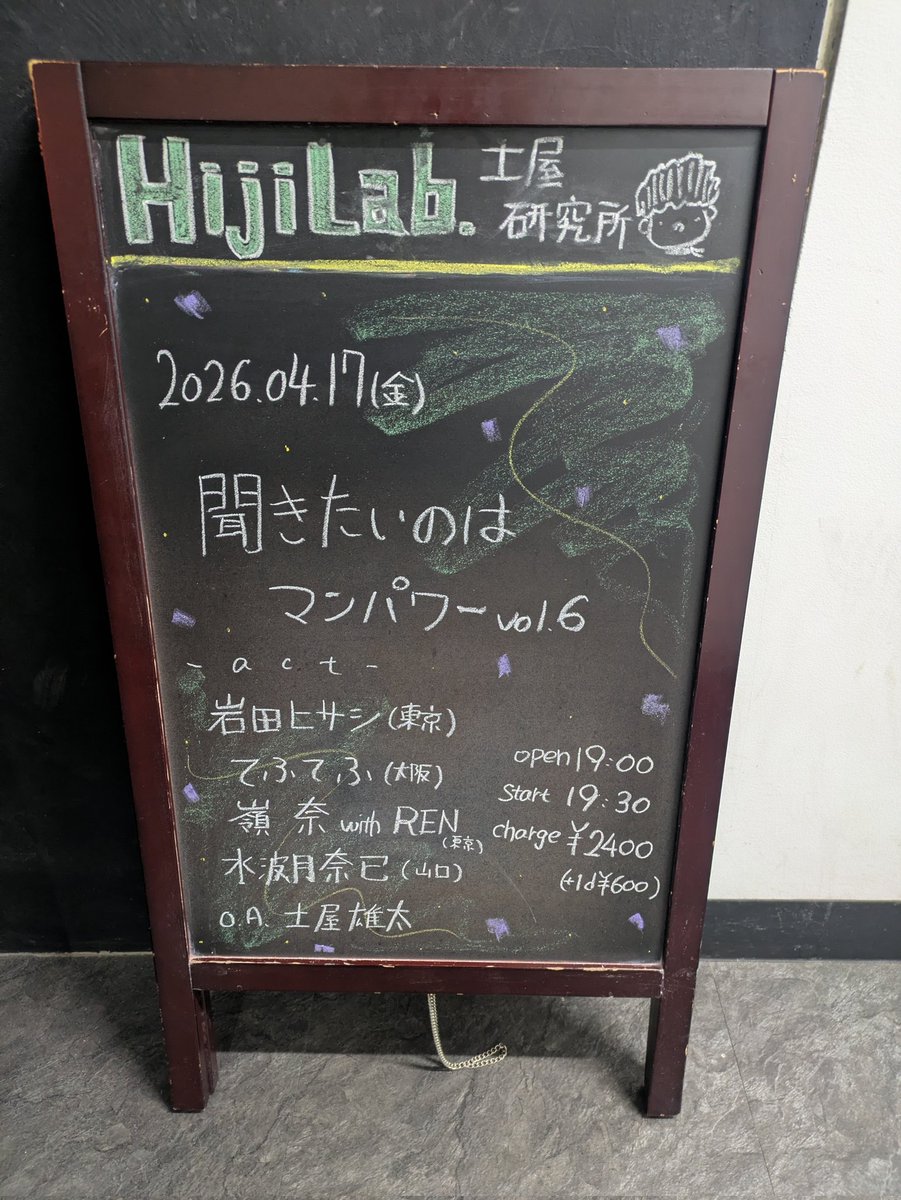 HijiLab.
土屋
研究所
2026.04.17(金)
聞きたいのは
マンパワーvol.6
- act -
岩田ヒサシ(東京)
てふてふ(大阪)
嶺奈 with REN
(東京)
水波月奈巳(山口)
O.A. 土屋雄太
open 19:00
Start 19:30
charge ¥2400
(+1d¥600)